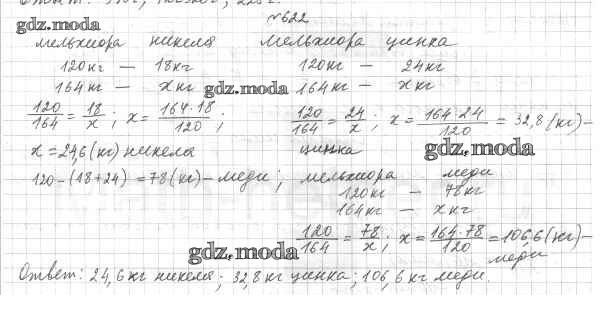 Ответ:
№622
gdz.moda
мельхиора никеля мельхиора цинка
120 кг — 18 кг 120 кг — 24 кг
164 кг — x кг gdz.moda 164 кг — x кг
120/164 = 18/x; x = 164·18/120; 120/164 = 24/x; x = 164·24/120 = 32,8 (кг) –
x = 24,6 (кг) никеля цинка gdz.moda
120 – (18+24) = 78 (кг) – меди; мельхиора меди
120 кг — 78 кг
164 кг — x кг
120/164 = 78/x; x = 164·78/120 = 106,6 (кг) –
gdz.moda меди
Ответ: 24,6 кг никеля; 32,8 кг цинка; 106,6 кг меди.